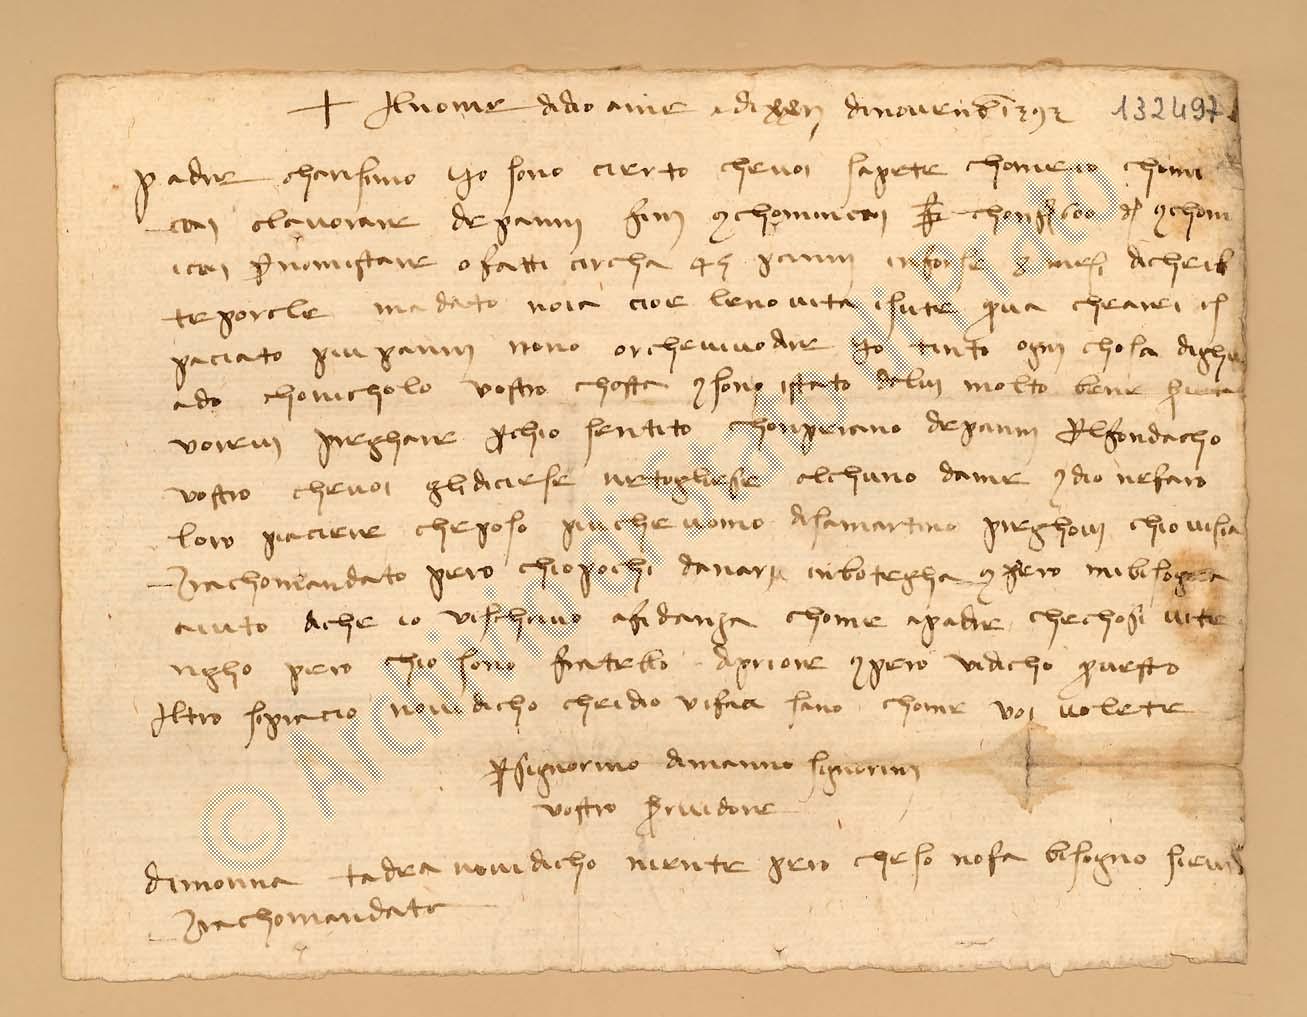 + Al nome didio ame adi xxvi dinovenb 1392 132497
padre charisimo Io sono cierto chevoi sapete chomeio chomi
cai alavorare depanni fini echomincai chonf 600 dj echom
icai pernonistare ofatti circha 45 panni inforse 8 mesi dicherib
teporele madato noia cioe lenovita isute
paciato piu panni nono orchevivodire tinto ogni chosa
ado chonicholo vostro chosta esono istato dalui molto bene
voravi preghare perchio sentito chonpriamo depanni perlfondacho
vostro chevoi glidiciese netogliese alchuno dame edio nefaro
loro piaciere cheposo piu cheuomo disamartino preghovi chiovisia
Rachomandato pero chiopochi danari inbotegha epero mibisogna
aiuto diche io vischrivo afidanza chome apadre chechosi vite
ngho pero chio sono fratello dapriore epero vidicho questo
Altro sopracio nonvidicho cheidio vifaca sano chome voi volete
per signorino dimanno signorini
vostro servidore
dimonna tadea nonvidicho niente pero cheso nofa bisogno
Rachomandate
© Archivio di Stato di Prato